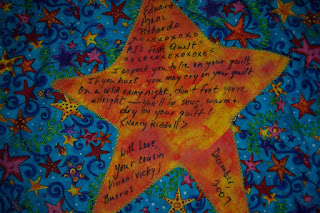 Edward
Anne
Richards
xoxoxoxoxox
Fish Quilt
I expect you to lie on your quilt
If you hurt, you may cry on your quilt
On a cold rainy night, don't fret you're
allright — You'll be snug, warm &
dry on your quilt!
<Nancy Riddell>
With Love,
Your cousin
Vivian (Vicky)
Burros
December,
2007